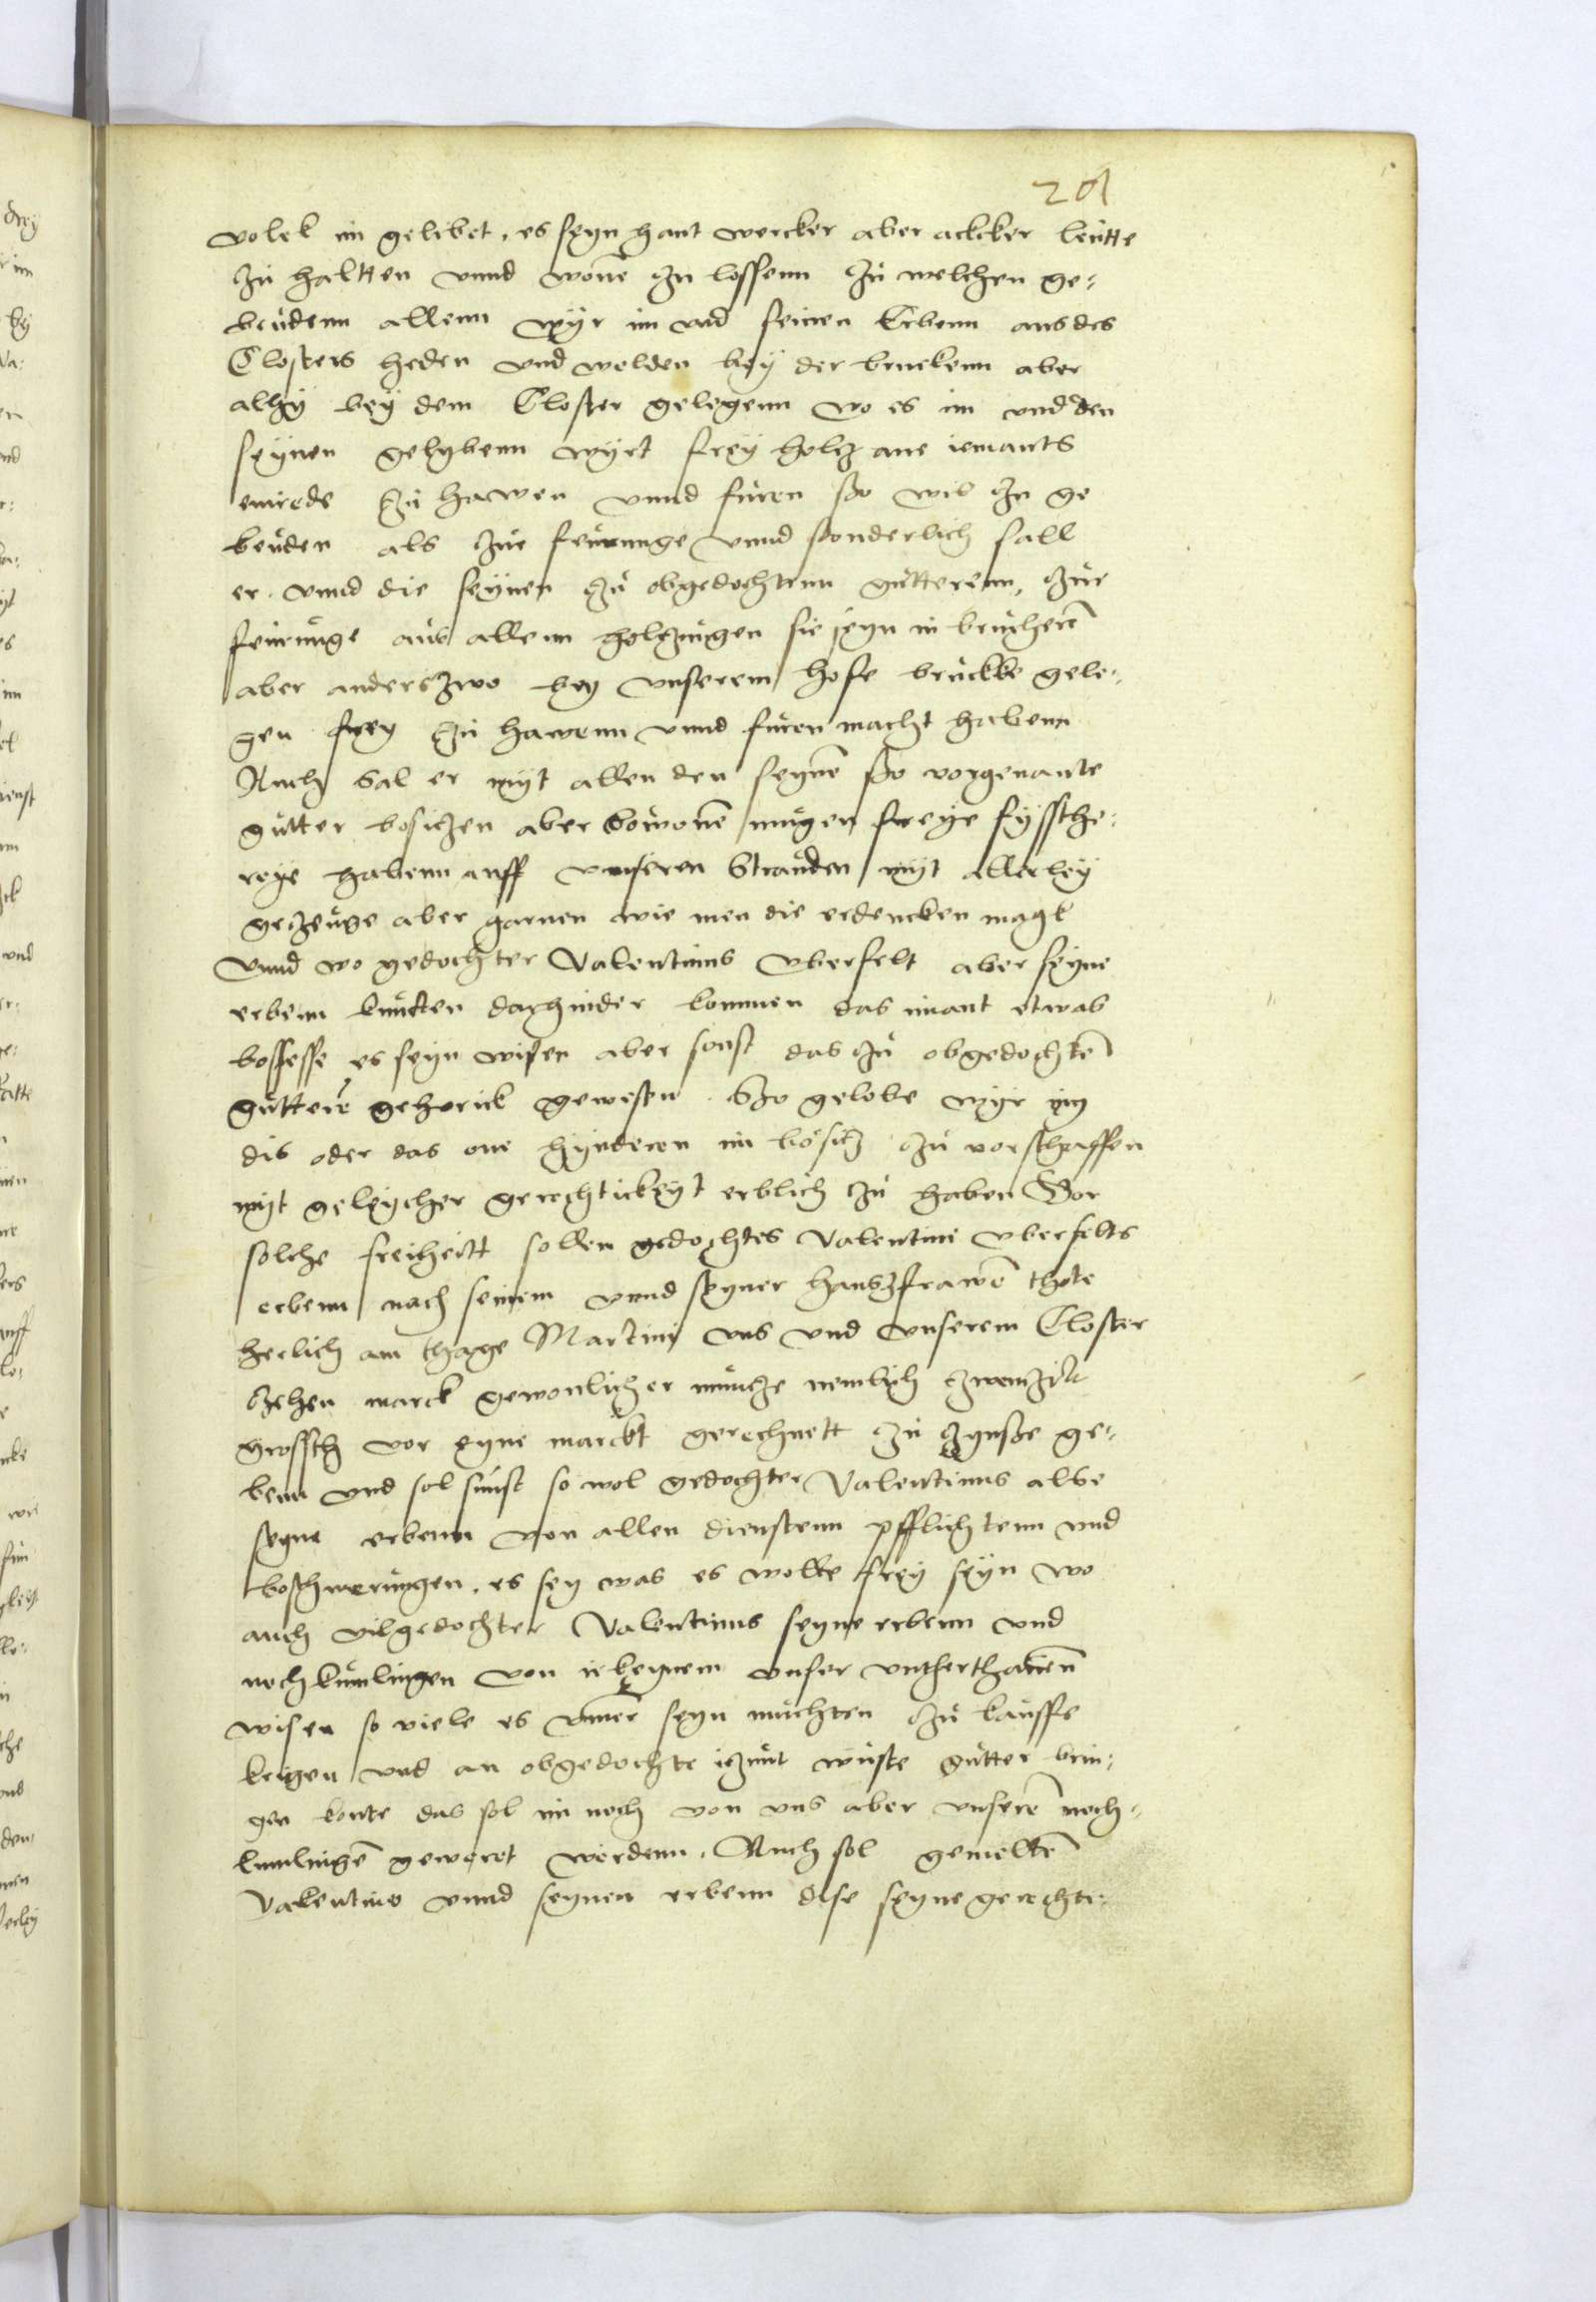 201
volck im gelibet, es seyn hant wercker aber ackcker leutte
zu haltten vnnd wonē zu lossenn zu welchen ge-
beudenn allenn wyr im vnd seinen Erbenn aus des
Closters heden vnd welden bey der bruckenn aber
alhy bey dem Closter gelegenn wo es im vnd den
seynen gelybenn wyrt frey holcz ane iemants
einrede zu hawen vnnd furen szo wie zu ge
beuden als zur feurunge vnnd szonderlich sall
er vnnd die seynen zu obgedochtenn gutterenn, zur
feurunge aus allenn holczungen sie seyn in brucherē
aber anderszwo bey vnserem hofe bruckke gele-
gen frey zu hawenn vnnd furen macht habenn
Auch sal er myt allen den seynē szo vorgenante
gutter besiczen aber bowonē mugen freye fyssche-
reye habenn auff vnseren Stranden myt allerley
geczeuge aber garnen wie men die erdencken magk
Vnnd wo gedochter Valentinus Vberfelt aber seyne
erbenn kundten darhinder kommen das imant etwas
bosesse es seyn wisen aber sonst das zu obgedochtē
gutterē gehorick gewesen. Szo gelobe wyr im
dis oder das one hynderen im bosicz zu vorschaffen
myt geleycher gerechtickeyt erblich zu haben Vor
solche freiheitt sollen gedochtes Valentini Vberfelts
erbenn nach seinem vnnd seyner hauszfrawē thote
herlich am thage Martini vns vnd vnserem Closter
Czehen marck gewonlicher muncze nemlich zwenzik
grossch vor eyne marckt gerechnett zu czynsze ge-
benn vnd sol sunst so wol gedochter Valentinus albe
seyne erbenn von allen dienstenn pfflichtenn vnd
boschwerungen, es sey was es wolle frey seyn wo
auch vilgedochter Valentinus seyne erbenn vnd
nochkumlingen von irkeynem vnser vntherthanenn
wisen so viele es ymer seyn muchten zu kauffe
krigen vnd an obgedochte iczunt wuste gutter brin-
gen konte das sol im noch von vns aber vnserē noch-
kumlingē geweret werdenn. Auch sol gemeltē
Valentino vnnd seynen erbenn dise seyne gerechte-